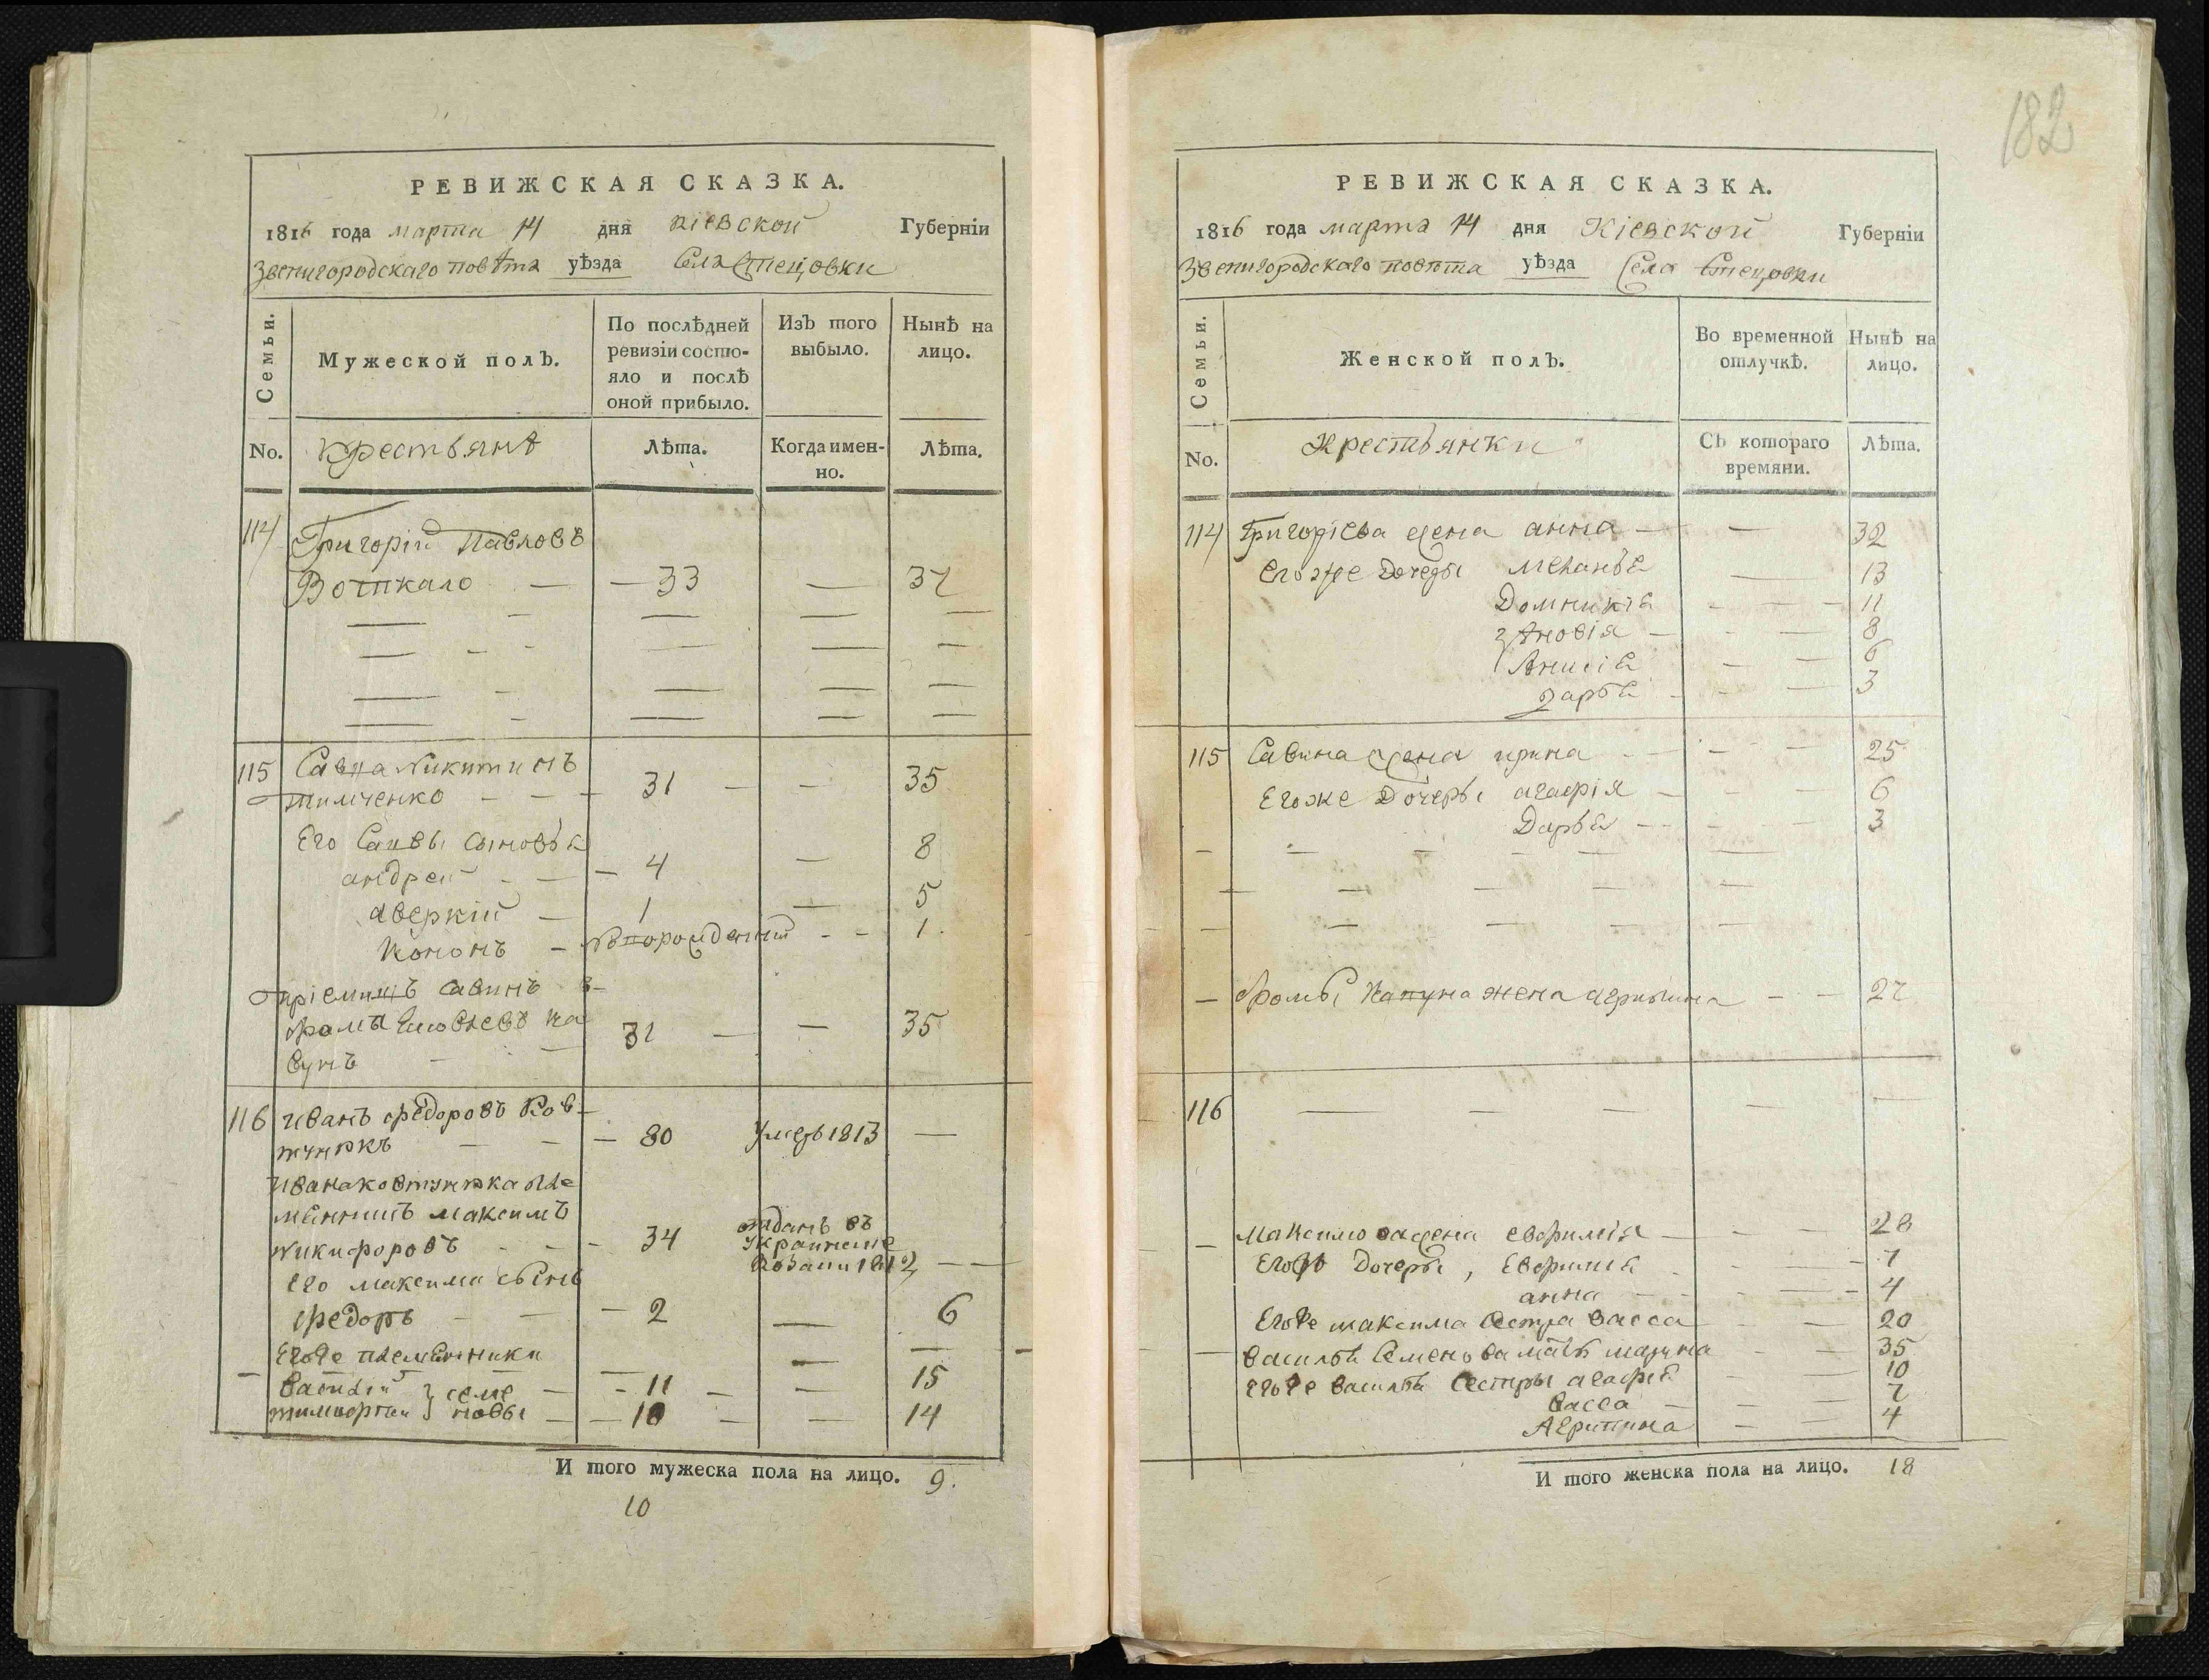 РЕВИЖСКАЯ СКАЗКА.
1816 года марта 14 дня Кіевской Губерніи
Звенигородскаго повѣта уѣзда Села Стецовки
Семьи.
Мужеской полъ.
По послѣдней ревизіи состо-
яло и послѣ оной прибыло.
Изъ того выбыло.
Нынѣ на лицо.
No. Крестьянѣ Лѣта. Когда имен-
но. Лѣта.
114 Григорій Павловъ
Воткало — — 33 — 37
115 Савва Никитинъ
тимченко - - - 31 - - 35
Его Саввы сыновья
андрей - — — 4 — 8
аверкій — 1 — 5
Кононъ — новорожденный - - 1
пріемышъ Савинъ
31 — — 35
116 Иванъ федоровъ Ков-
тунпкъ — — — 80 умеръ 1813 —
Ивана
максимъ
Никифоровъ - - - 34 отданъ въ
Украинские
козаки 1812 — —
Его максима сынъ
федоръ - — — 2 — 6
Егоже племянники
Василій } семе — - 11 — — 15
тимофтей } новы — — 10 — — 14
И того мужеска пола на лицо. 9.
10
182
РЕВИЖСКАЯ СКАЗКА.
1816 года марта 14 дня Кіевской Губерніи
Звенигородскаго повѣта уѣзда Села Стецовки
Семьи.
Женской полъ.
Во временной отлучкѣ.
Нынѣ на лицо.
No. Крестьянки Съ котораго
времяни. Лѣта.
114 Григоріева жена анна — — 32
Егоже дочеры меланья — 13
Домникія - — - 11
зѣновія — - — 8
Анисія - — 6
дарья - - — 3
115 Савина жена ирина - — - — 25
Егоже Дочеры агафія — - — 6
Дарья — - - — 3
— жена агрипина - — 27
116 — — — — —
— жена евфимія — - — 28
Дочеры, Евфимія - - — - 7
анна - - - — - 4
Егоже максима Сестра васса - — 20
— Василья Семенова мать марина - — 35
Егоже василья Сестры агафія - — 10
васса — - — 7
Агрипина — — 4
И того женска пола на лицо. 18